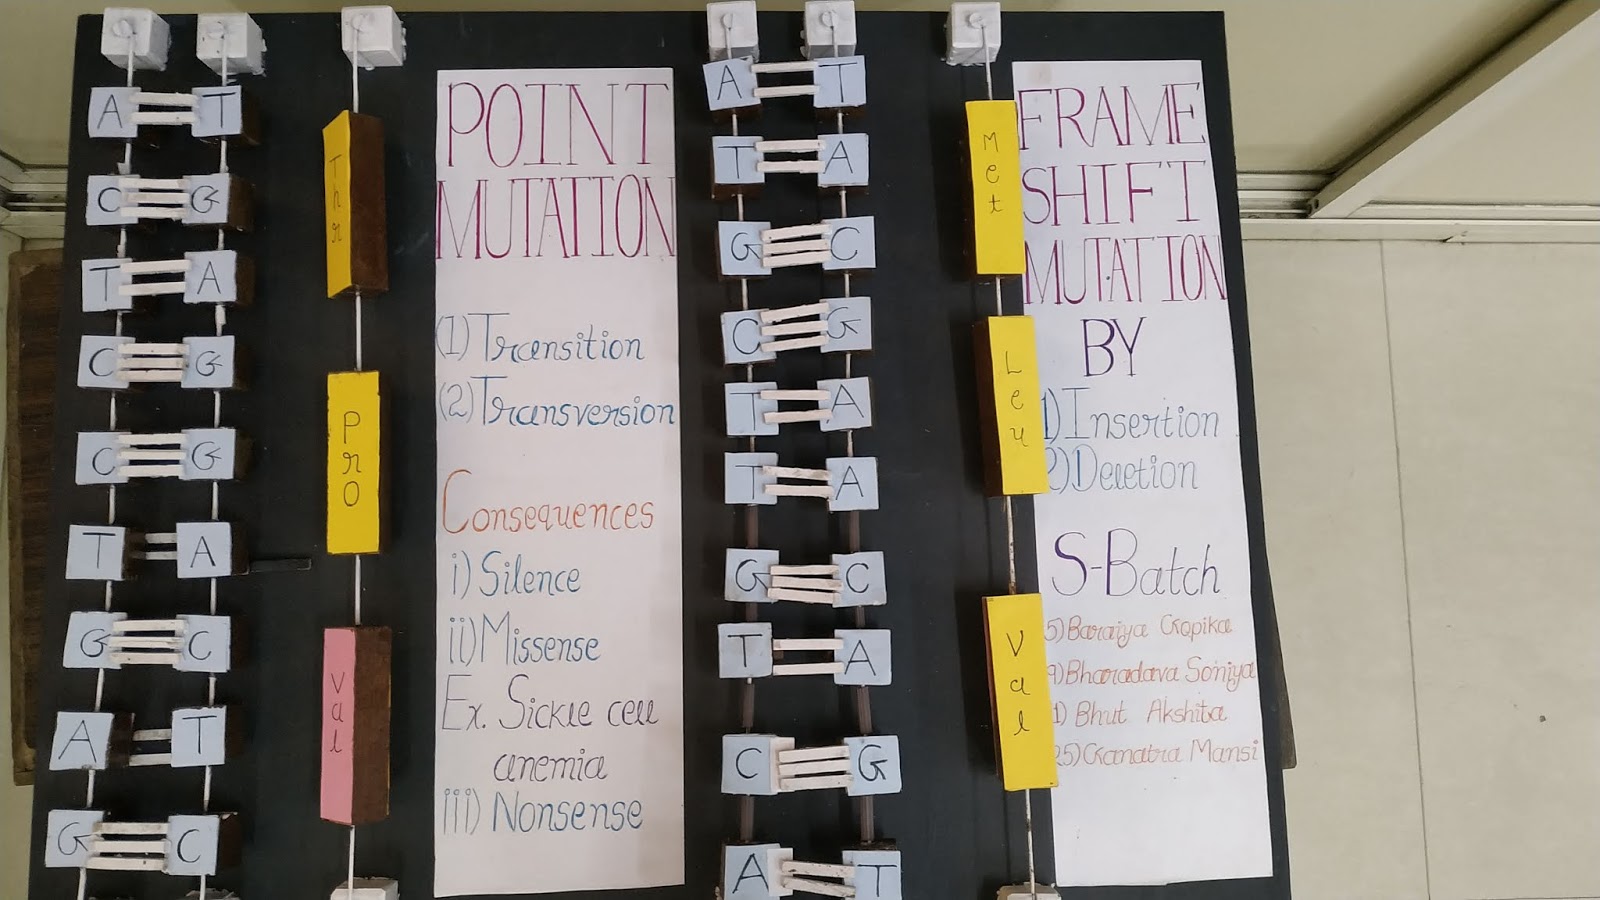 A T
C G
T A
C G
C G
T A
G C
A T
G C
Thr
Pro
Val
POINT
MUTATION
(1) Transition
(2) Transversion
Consequences
i) Silence
ii) Missense
Ex. Sickle cell
anemia
iii) Nonsense
A T
T A
G C
C G
T A
T A
G C
T A
C G
A T
Met
Leu
Val
FRAME
SHIFT
MUTATION
BY
1) Insertion
2) Deletion
S-Batch
5) Baraiya Gopika
9) Bharadava Soniya
1) Bhut Akshita
25) Ganatra Mansi